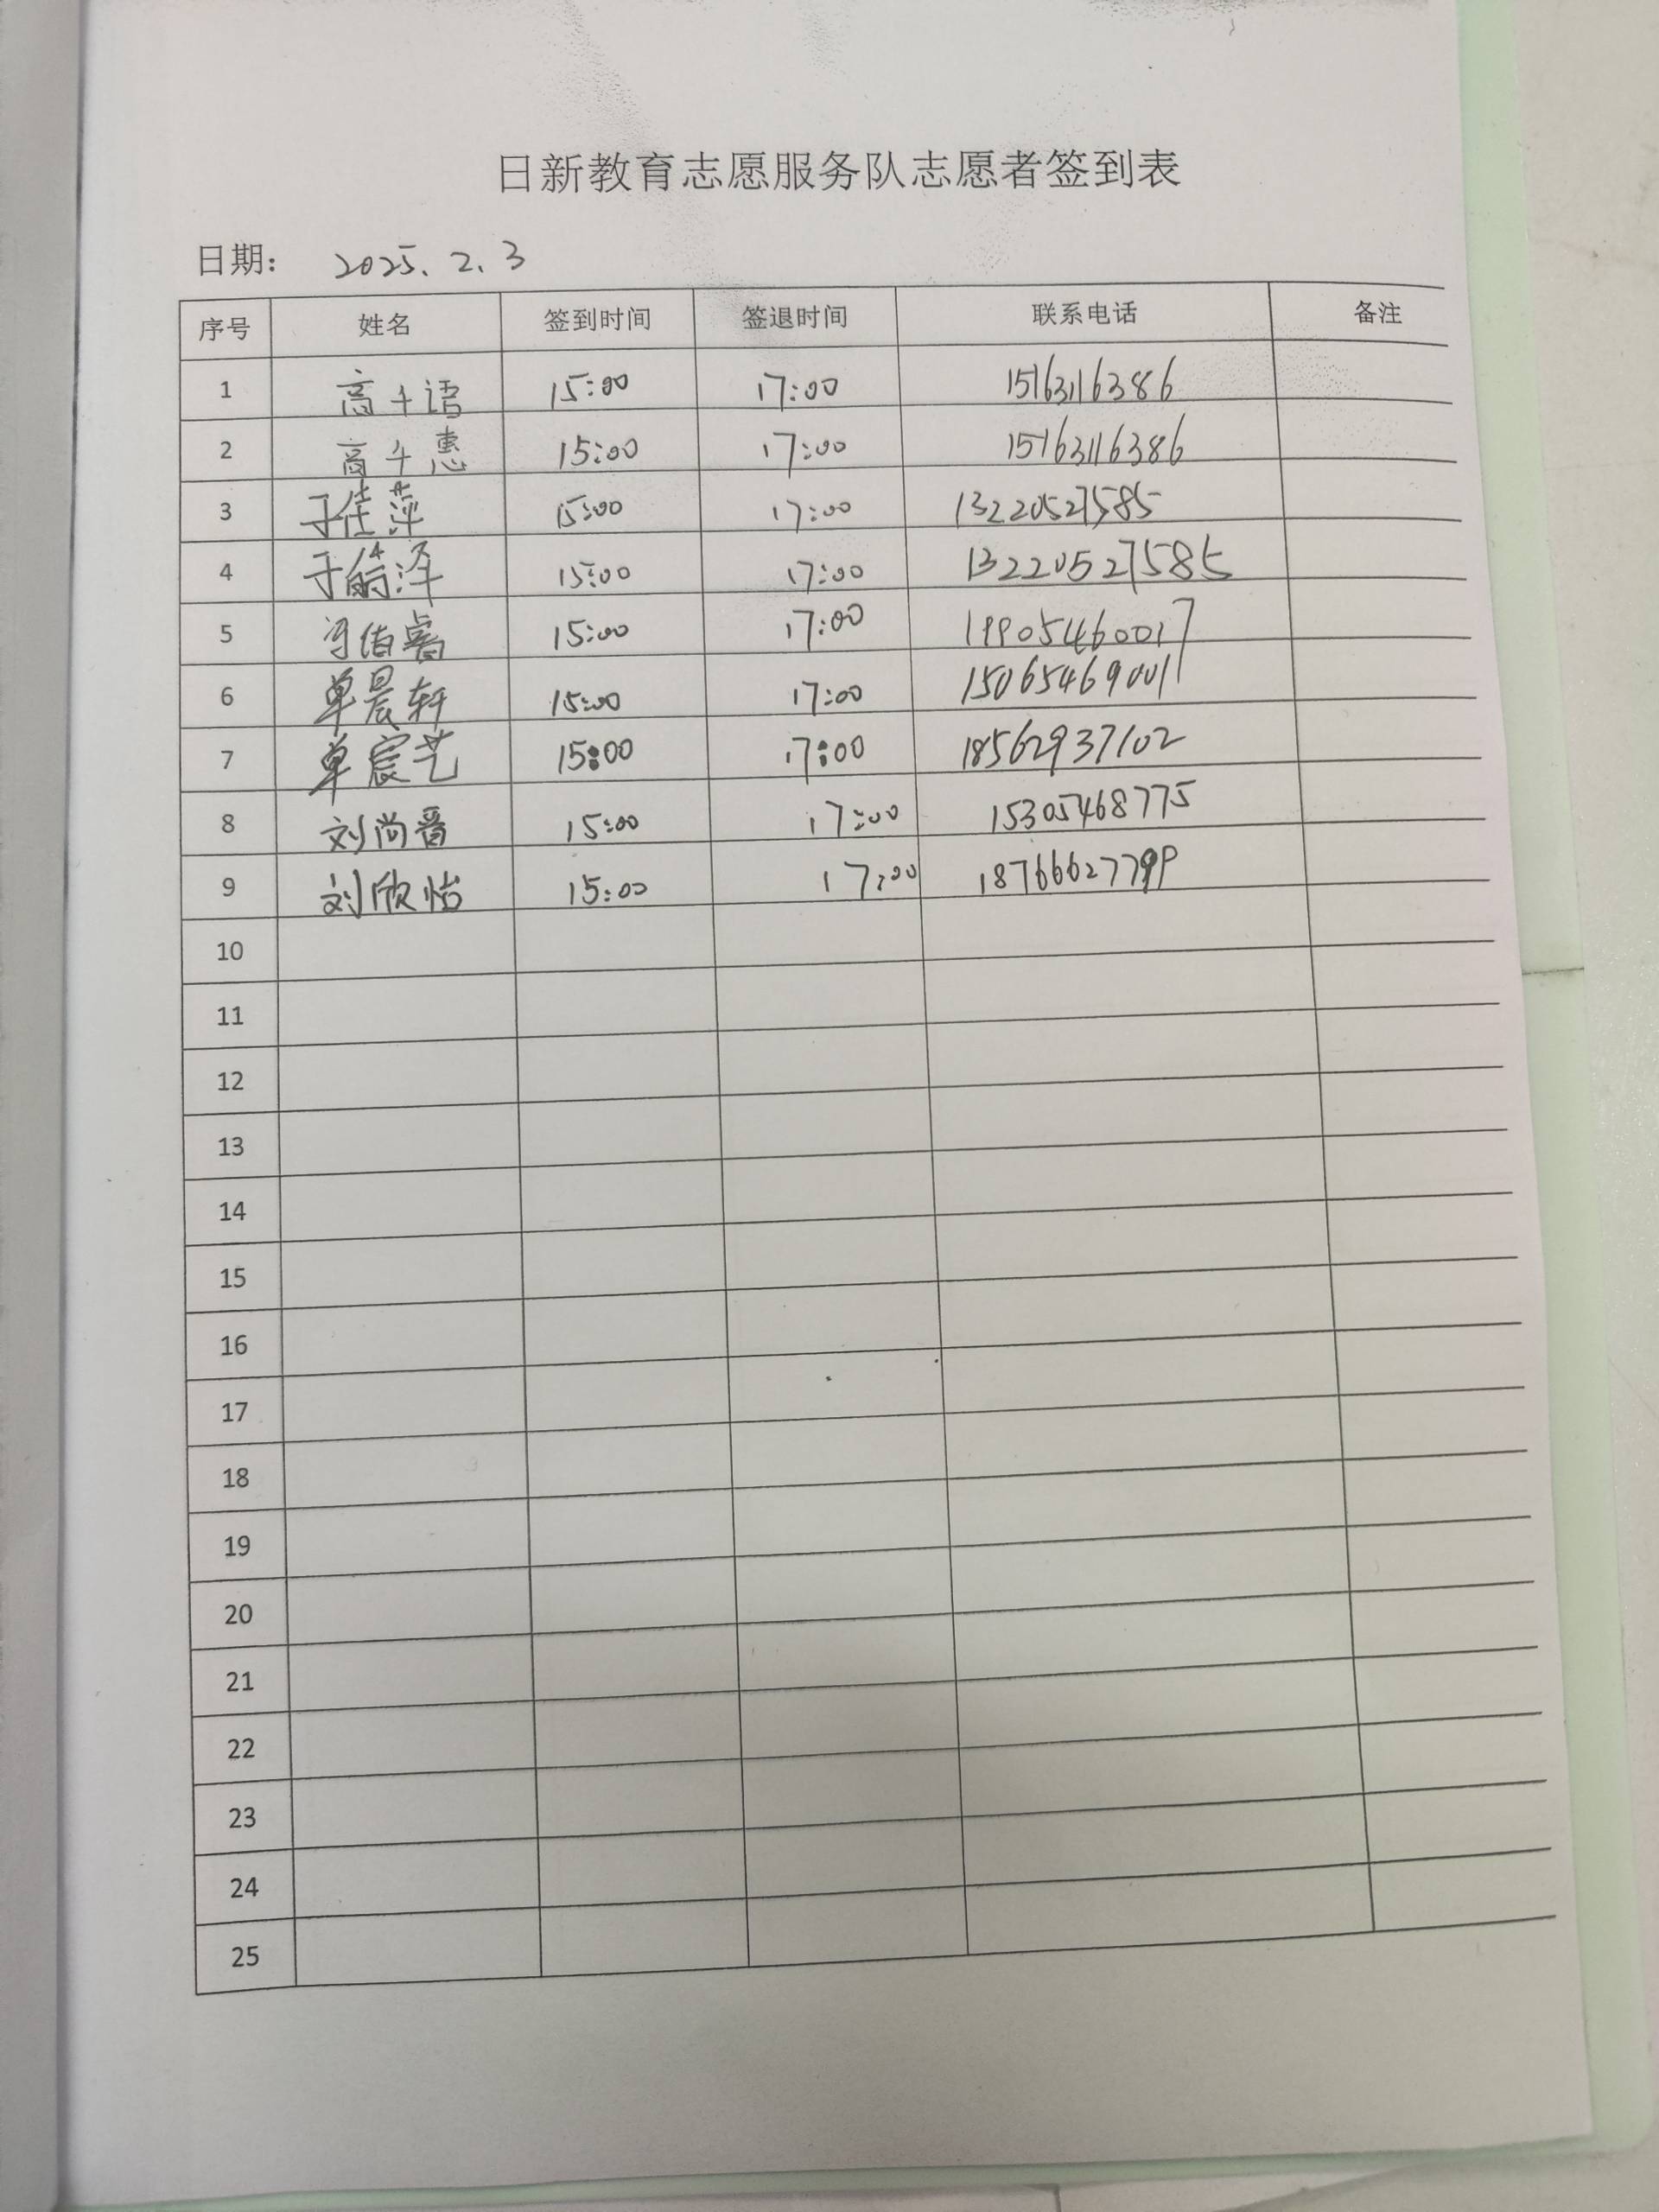 日新教育志愿服务队志愿者签到表
日期： 2025.2.3
序号 姓名 签到时间 签退时间 联系电话 备注
1 高千语 15:00 17:00 15163116386
2 高千惠 15:00 17:00 15163116386
3 于佳萍 15:00 17:00 13220527585
4 于皓泽 15:00 17:00 13220527585
5 冯伯睿 15:00 17:00 19905460017
6 单晨轩 15:00 17:00 15065469001
7 单宸艺 15:00 17:00 18562937102
8 刘尚晋 15:00 17:00 15305468775
9 刘欣怡 15:00 17:00 18766627799
10
11
12
13
14
15
16
17
18
19
20
21
22
23
24
25